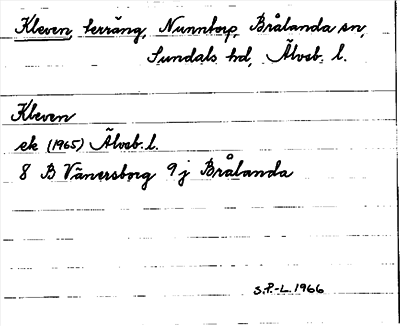 Kleven, terräng, Nunntorp, Brålanda sn,
Sundals hd, Älvsb. l.
Kleven
ek (1965) Älvsb. l.
8 B Vänersborg 9j Brålanda
S.P.-L. 1966